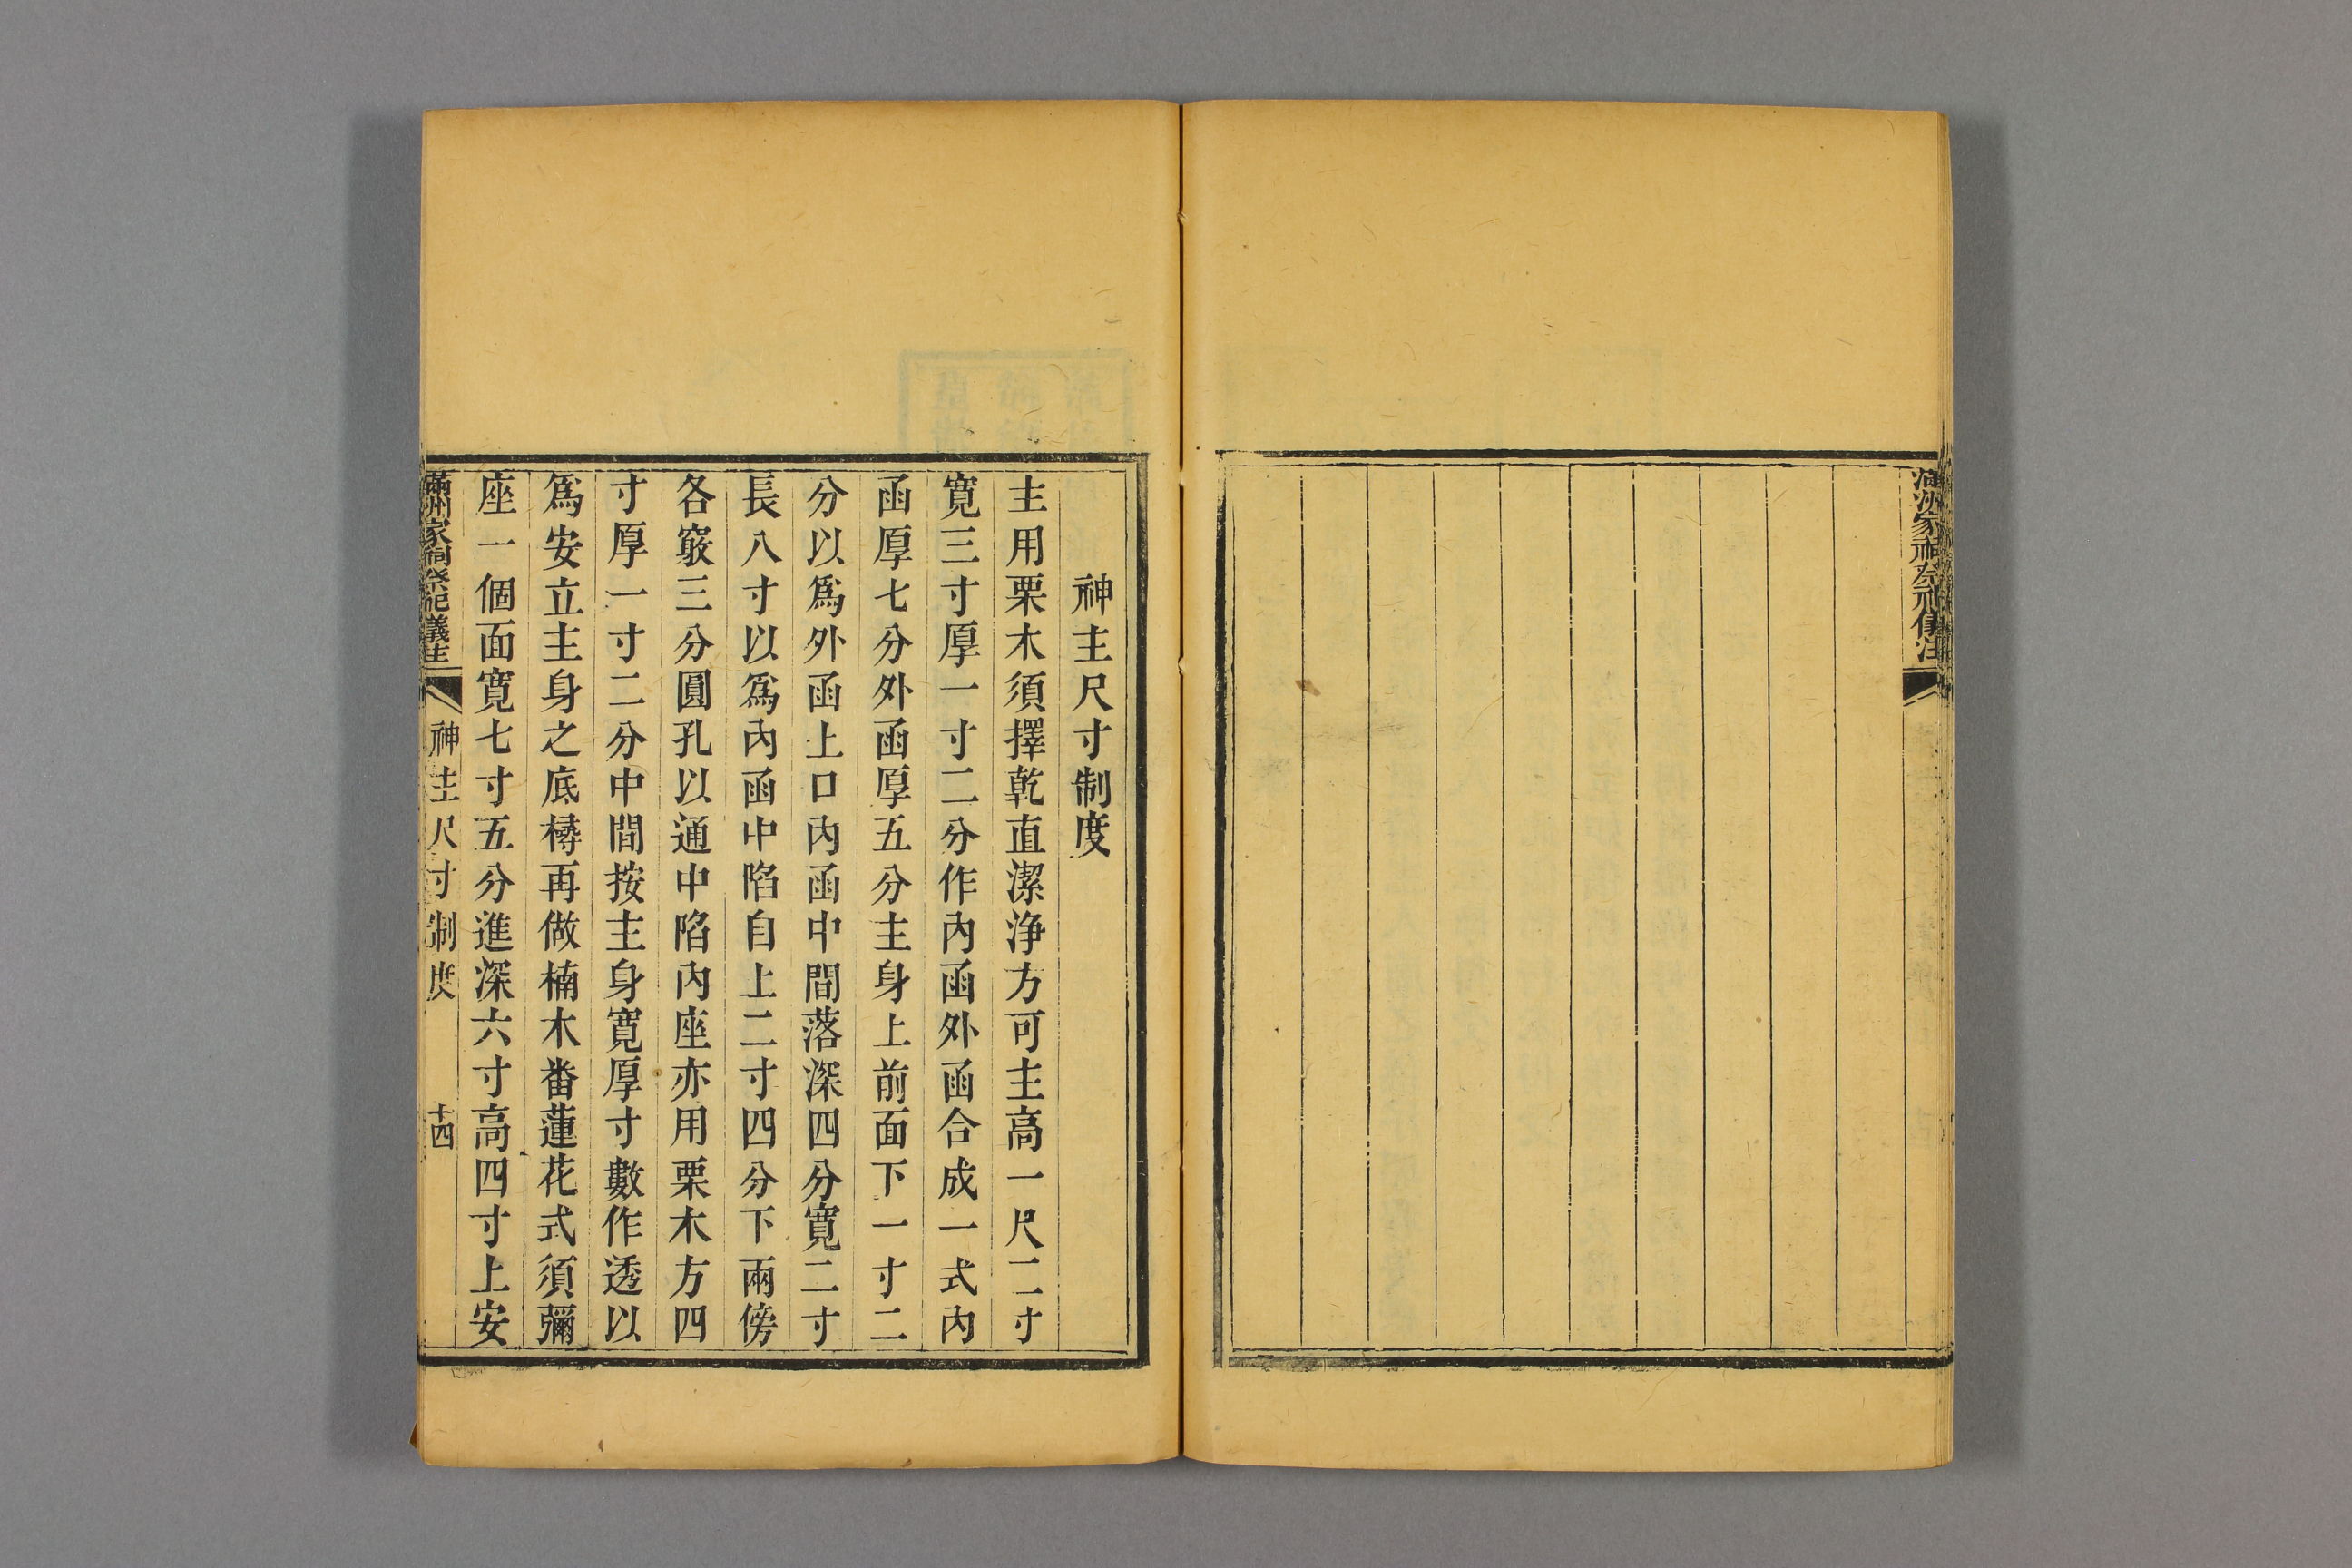 滿洲家祠祭祀儀注
神主尺寸制度
主用栗木須擇乾直潔浄方可主高一尺二寸
寛三寸厚一寸二分作內函外函合成一式內
函厚七分外函厚五分主身上前面下一寸二
分以爲外函上口內函中間落深四分寛二寸
長八寸以爲內函中陷自上二寸四分下兩傍
各竅三分圓孔以通中陷內座亦用栗木方四
寸厚一寸二分中間按主身寛厚寸數作透以
爲安立主身之底樽再做楠木番蓮花式須彌
座一個面寛七寸五分進深六寸高四寸上安
滿洲家祠祭祀儀注
神主尺寸制度
十四